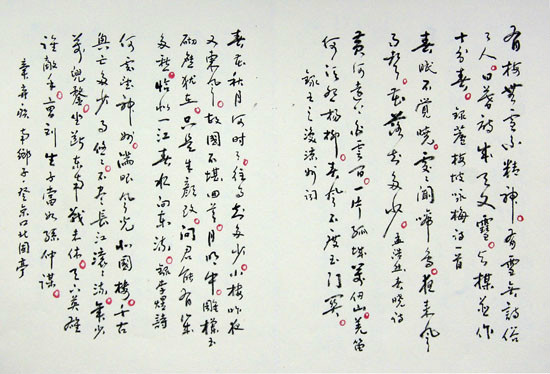 有梅無雪不精神。有雪無詩俗
了人。日暮詩成天又雪。与梅並作
十分春。錄盧梅坡詠梅詩一首
春眠不覺曉。處々聞啼鳥。夜来風
雨聲。花落知多少。孟浩然春曉詩
黃河遠上白雲間。一片孤城萬仞山。羌笛
何須怨楊柳。春風不度玉門関。
錄王之渙涼州詞
春花秋月何時了。往事知多少。小樓昨夜
又東風。故國不堪回首月明中。雕欄玉
砌應猶在。只是朱顏改。問君能有幾
多愁。恰似一江春水向東流。錄李煜詩
何處望神州。滿眼風光北固樓。千古
興亡多少事。悠々。不盡長江滾々流。年少
萬兜鍪。坐斷東南戰未休。天下英雄
誰敵手。曹劉。生子當如孫仲謀。
辛棄疾 南鄉子 登京口北固亭